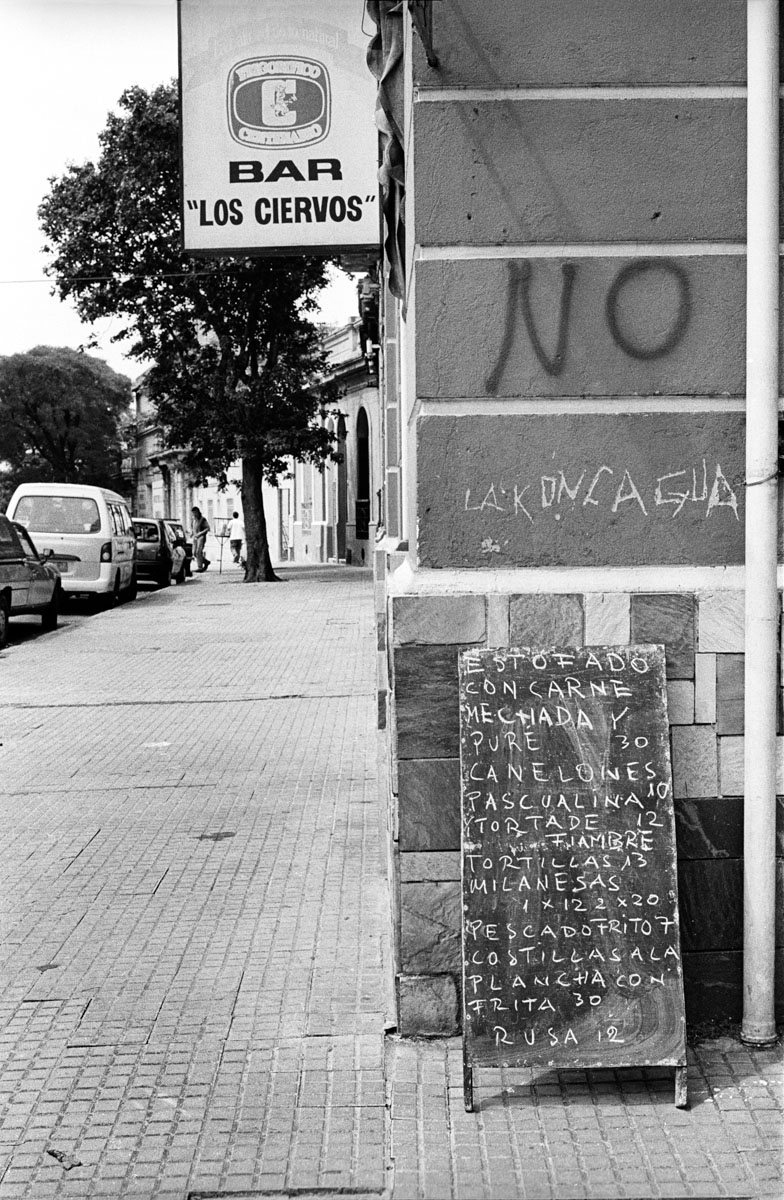 FRIGORIFICO
C
CENTENARIO
BAR
"LOS CIERVOS"
NO
LA·KONCAGUA
ESTOFADO
CON CARNE
MECHADA Y
PURÉ 30
CANELONES
PASCUALINA 10
Y TORTA DE 12
FIAMBRE
TORTILLAS 13
MILANESAS
1 X 12 2 X 20
PESCADO FRITO 7
COSTILLAS A LA
PLANCHA CON
FRITA 30
RUSA 12